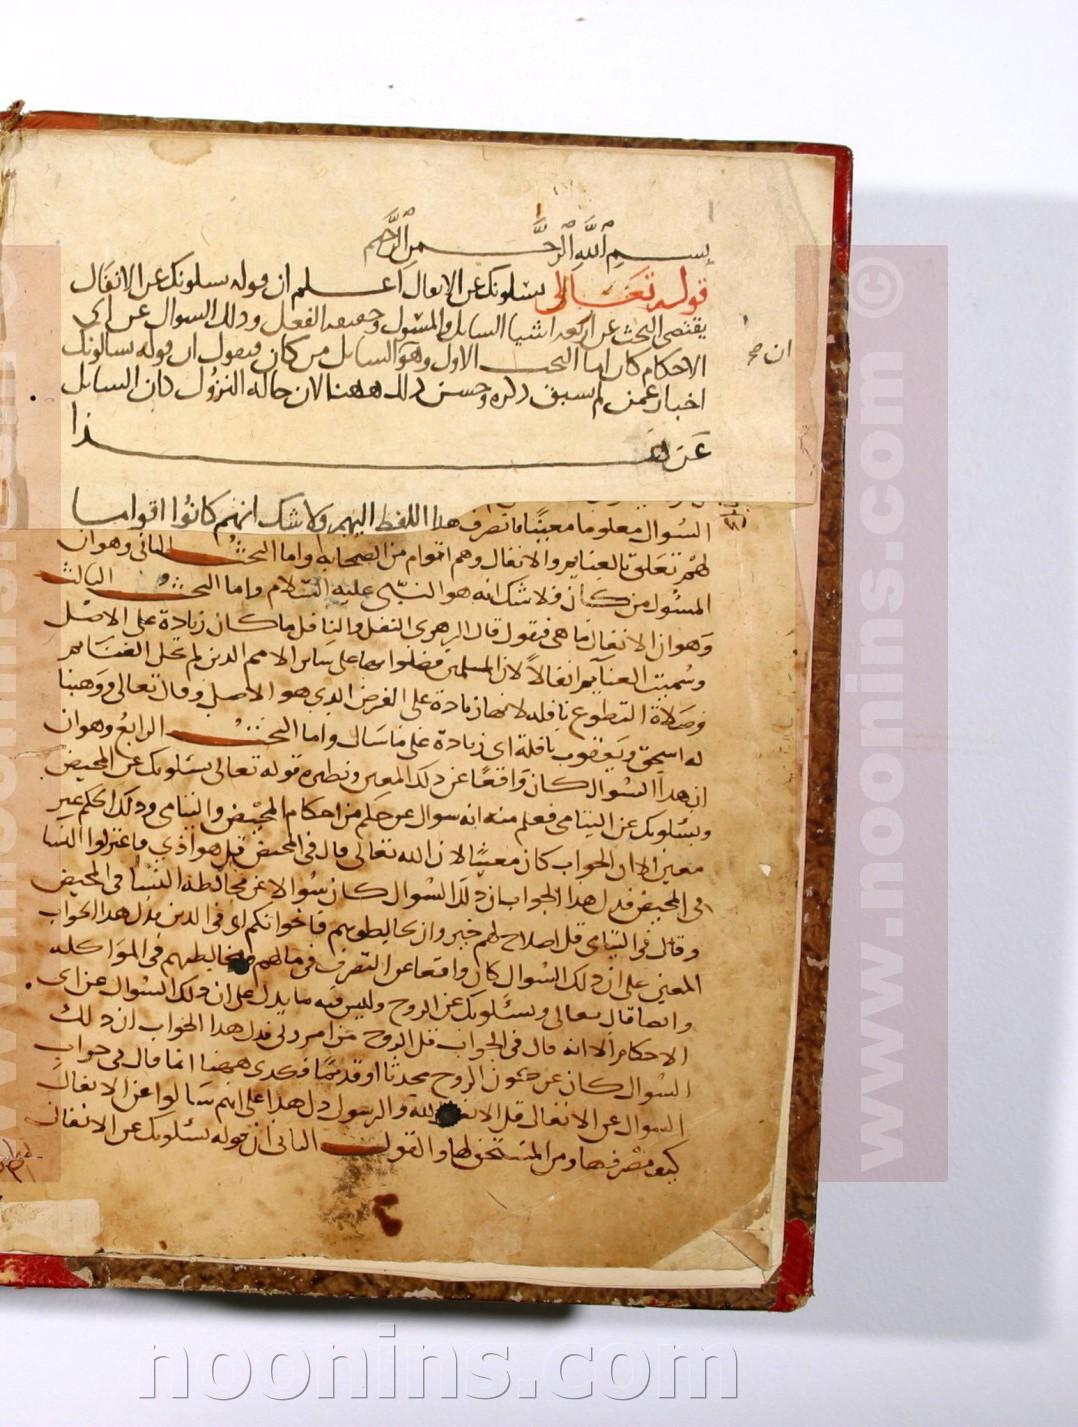 بسم الله الرحمن الرحيم
قوله تعالى يسلونك عن الانفال اعلم ان قوله يسلونك عن الانفال
يقتضى البحث عن اربعه اشيا السايل والمسول وحقيقه الفعل وذلك السوال عن اى
الاحكام كان اما البحث الاول وهو السايل من كان فيقول ان قوله يسالونك
ان صح
اخبار عمن لم يسبق ذكره وحسن ذلك ههنا لان حاله النزول كان السايل
عن هذا
السوال معلوما معينا فانصرف هذا اللفظ اليهم ولا شك انهم كانوا اقواما
لهم تعلق بالغنايم والانفال وهم اقوام من الصحابه واما البحث الثانى وهو ان
المسئول من كان فلا شك انه هو النبى عليه السلام واما البحث الثالث
وهو ان الانفال ما هى فيقول قال الزهرى النفل والنافل ما كان زيادة على الاصل
وسميت الغنايم انفالا لان المسلمين فضلوا بها على ساير الامم الذين لم تحل الغنايم
وصلاة التطوع نافله لانها زيادة على الفرض الذي هو الاصل وقال تعالى ووهبنا
له اسحق ويعقوب نافلة اى زيادة على ما سال واما البحث الرابع وهو ان
ان هذا السوال كان واقعا عن ذلك المعين ونظيره قوله تعالى يسلونك عن المحيض
ويسلونك عن اليتامى فعلم منه انه سوال عن حكم من احكام المحيض واليتامى وذلك الحكم غير
معين الا ان الجواب كان معينا لان الله تعالى قال فى المحيض قل هو اذي فاعتزلوا النسا
فى المحيض فدل هذا الجواب ان ذلك السوال كان سوالا عن مخالطة النسا فى المحيض
وقال فى اليتامى قل اصلاح لهم خير وان تخالطوهم فاخوانكم اى فى الدين فدل هذا الجواب
المعين على ان ذلك السوال كان واقعا عن التصرف فى مالهم ومخالطتهم فى المواكله
وايضا قال تعالى ويسئلونك عن الروح وليس فيه ما يدل على ان ذلك السوال عن اى
الاحكام الا انه قال فى الجواب قل الروح من امر ربى فدل هذا الجواب ان ذلك
السوال كان عن كون الروح محدثا او قديما فكذى ههنا انما قال فى جواب
السوال عن الانفال قل الانفال لله والرسول دل هذا على انهم سالوا عن الانفال
كيف مصرفها ومن المستحق لها والقول الثانى ان قوله يسئلونك عن الانفال
www.noonins.com ©
noonins.com